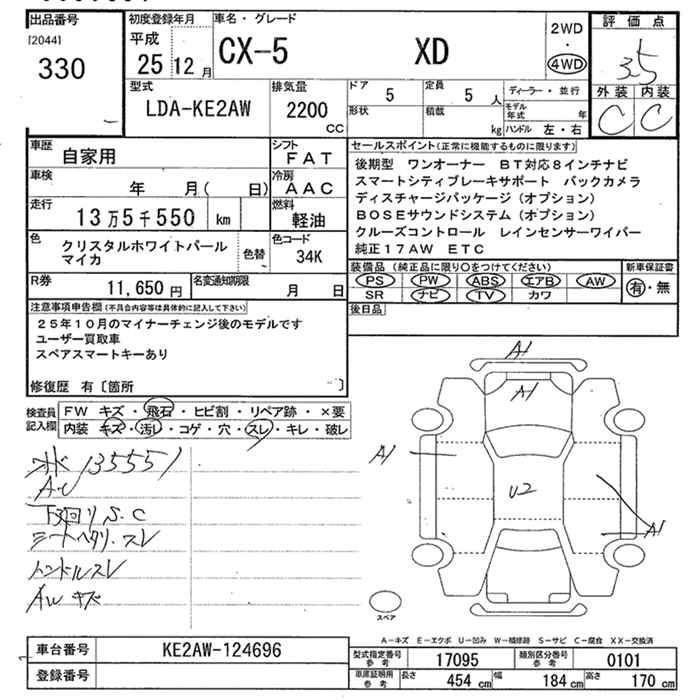 出品番号
[2044]
330
初度登録年月
平成
25 12 月
車名・グレード
CX-5 XD
2WD
・
4WD
評価点
3.5
外装 内装
C C
型式
LDA-KE2AW
排気量
2200
CC
ドア 5
定員 5 人
形状
積載 kg
ディーラー・並行
モデル年式 年
ハンドル 左・右
車歴 自家用
シフト FAT
車検 年 月( 日)
冷房 AAC
走行 13万5千550 km
燃料 軽油
色 クリスタルホワイトパール
マイカ
色替
色コード 34K
R券 11,650 円
名変通知期限 月 日
セールスポイント(正常に機能するものに限ります)
後期型 ワンオーナー BT対応8インチナビ
スマートシティブレーキサポート バックカメラ
ディスチャージパッケージ(オプション)
BOSEサウンドシステム(オプション)
クルーズコントロール レインセンサーワイパー
純正17AW ETC
装備品(純正品に限り○をつけてください)
PS PW ABS エアB AW
SR ナビ TV カワ
新車保証書
有・無
後日品
注意事項申告欄(不具合内容等は具体的に記入して下さい)
25年10月のマイナーチェンジ後のモデルです
ユーザー買取車
スペアスマートキーあり
修復歴 有〔箇所 〕
検査員記入欄
FW キズ・飛石・ヒビ割・リペア跡・×要
内装 キズ・汚レ・コゲ・穴・スレ・キレ・破レ
135551
A-U
下廻り S.C
シートヘタリ、スレ
ハンドルスレ
AW キズ
A1
A1
A1
U2
A1
スペア
A-キズ E-エクボ U-凹み W-補修跡 S-サビ C-腐食 XX-交換済
車台番号 KE2AW-124696
登録番号
型式指定番号 参考 17095
類別区分番号 参考 0101
車庫証明用 参考 長さ 454 cm 幅 184 cm 高さ 170 cm